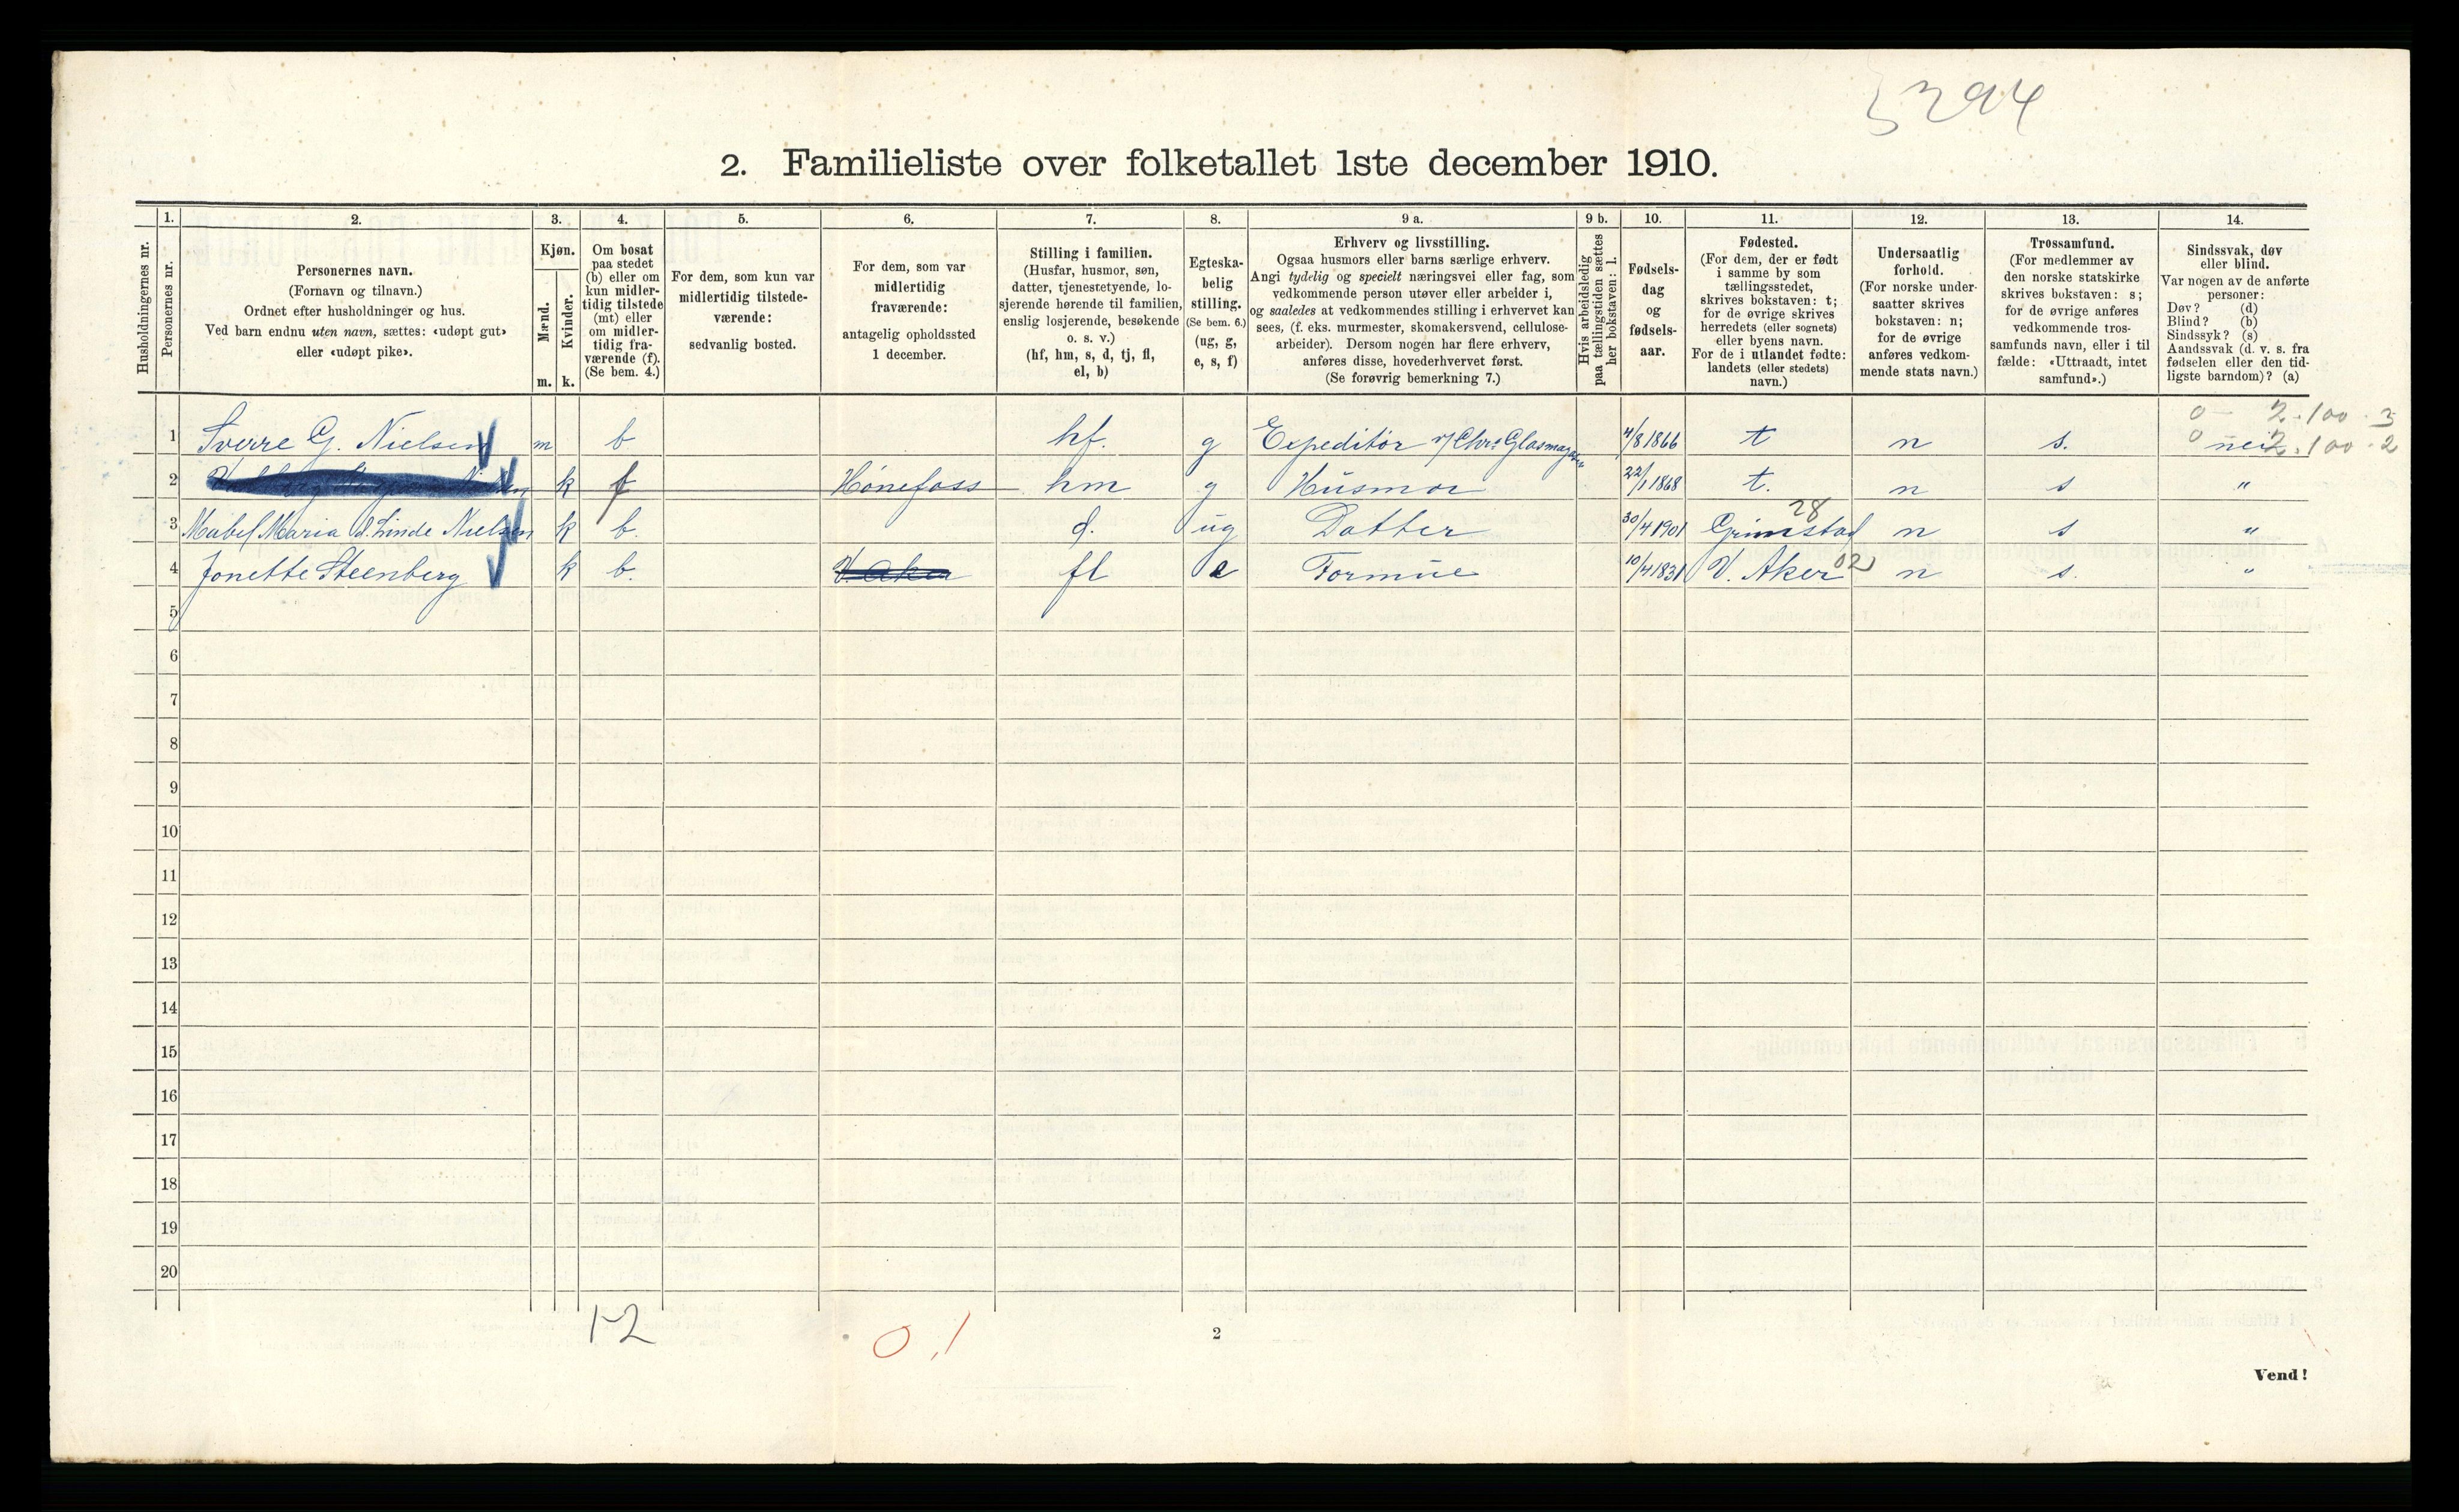 3294
2. Familieliste over folketallet 1ste december 1910.
Husholdningernes nr.
1. Personernes nr.
2. Personernes navn.
(Fornavn og tilnavn.)
Ordnet efter husholdninger og hus.
Ved barn endnu uten navn, sættes: «udøpt gut»
eller «udøpt pike».
3. Kjøn.
Mænd. m.
Kvinder. k.
4. Om bosat
paa stedet
(b) eller om
kun midler-
tidig tilstede
(mt) eller
om midler-
tidig fra-
værende (f).
(Se bem. 4.)
5. For dem, som kun var
midlertidig tilstede-
værende:
sedvanlig bosted.
6. For dem, som var
midlertidig
fraværende:
antagelig opholdssted
1 december.
7. Stilling i familien.
(Husfar, husmor, søn,
datter, tjenestetyende, lo-
sjerende hørende til familien,
enslig losjerende, besøkende
o. s. v.)
(hf, hm, s, d, tj, fl,
el, b)
8. Egteska-
belig
stilling.
(Se bem. 6.)
(ug, g,
e, s, f)
9 a. Erhverv og livsstilling.
Ogsaa husmors eller barns særlige erhverv.
Angi tydelig og specielt næringsvei eller fag, som
vedkommende person utøver eller arbeider i,
og saaledes at vedkommendes stilling i erhvervet kan
sees, (f. eks. murmester, skomakersvend, cellulose-
arbeider). Dersom nogen har flere erhverv,
anføres disse, hovederhvervet først.
(Se forøvrig bemerkning 7.)
9 b. Hvis arbeidsledig
paa tællingstiden sættes
her bokstaven: l.
10. Fødsels-
dag
og
fødsels-
aar.
11. Fødested.
(For dem, der er født
i samme by som
tællingsstedet,
skrives bokstaven: t;
for de øvrige skrives
herredets (eller sognets)
eller byens navn.
For de i utlandet fødte:
landets (eller stedets)
navn.)
12. Undersaatlig
forhold.
(For norske under-
saatter skrives
bokstaven: n;
for de øvrige
anføres vedkom-
mende stats navn.)
13. Trossamfund.
(For medlemmer av
den norske statskirke
skrives bokstaven: s;
for de øvrige anføres
vedkommende tros-
samfunds navn, eller i til
fælde: «Uttraadt, intet
samfund».)
14. Sindssvak, døv
eller blind.
Var nogen av de anførte
personer:
Døv? (d)
Blind? (b)
Sindssyk? (s)
Aandssvak (d. v. s. fra
fødselen eller den tid-
ligste barndom)? (a)
0 2.100.3
1 Sverre G. Nielsen m b hf. g Expeditör v/ Chr. Glasmagasin 4/8 1866 t n s. 0 nei 2.100.2
2 k f Hønefoss hm g Husmor 22/1 1868 t. n s "
28
3 Mabel Maria d. Linde Nielsen k b. d. ug Datter 30/4 1901 Grimstad n s "
4 Jonette Steenberg k b. V. Aker fl e Formue 10/4 1831 V. Aker 02 n s. "
5
6
7
8
9
10
11
12
13
14
15
16
17
18
19
20
1-2
0.1
2
Vend!